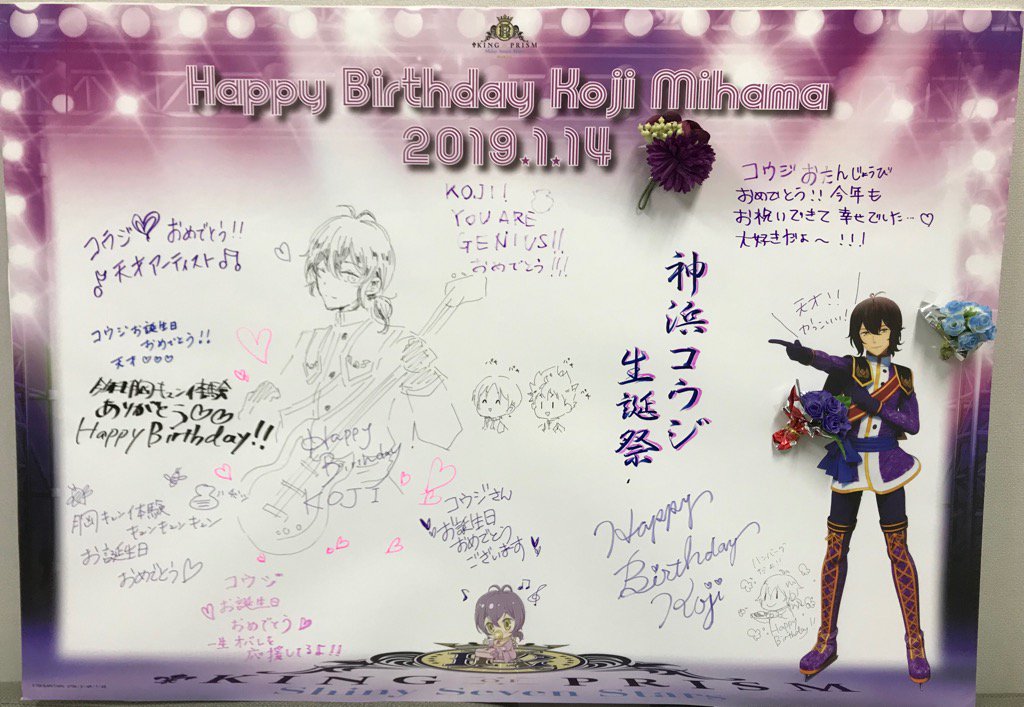 KING OF PRISM
Shiny Seven Stars
Happy Birthday Koji Mihama
2019.1.14
コウジ♡おめでとう!!
♪天才アーティスト♫
KOJI!
YOU ARE
GENIUS!!
おめでとう!!!
コウジおたんじょうび
おめでとう!!今年も
お祝いできて幸せでした…♡
大好きだよ〜!!!
コウジお誕生日
おめでとう!!
天才♡♡♡
胸キュン体験
ありがとう♡♡
Happy Birthday!!
神浜コウジ
生誕祭
天才!!
かっこいい!
Happy
Birthday!
KOJI
胸キュン体験
キュンキュンキュン
お誕生日
おめでとう♡
コウジさん
お誕生日
おめでとう
ございます♥
Happy
Birthday
Koji
ハンバーグ
だよ!!
Happy
Birthday!!
コウジ
♡お誕生日
おめでとう♡
一生オバレを
応援してるよ!!
KING OF PRISM
Shiny Seven Stars